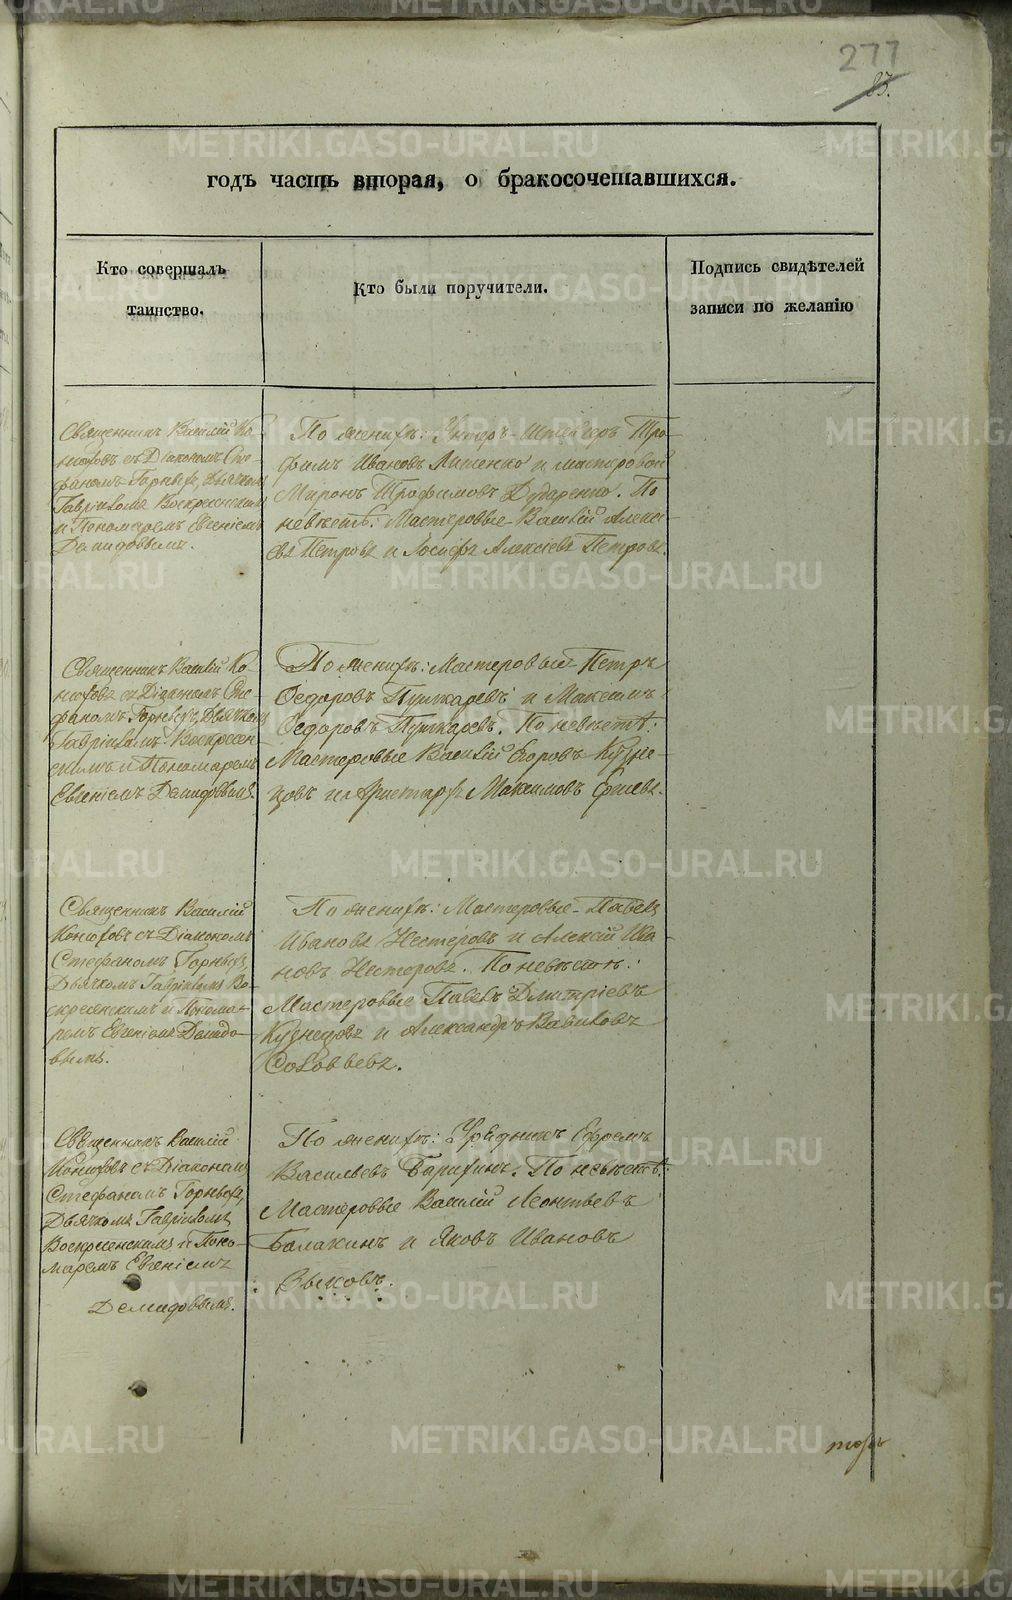 277
83.
годъ часть вторая, о бракосочетавшихся.
Кто совершалъ
таинство.
Кто были поручители.
Подпись свидѣтелей
записи по желанію
Священникъ Василій Ко-
нюховъ съ Діакономъ Сте-
фаномъ Горныхъ, Дьячкомъ
Гавріиломъ Воскресенскимъ
и Пономаремъ Евгеніемъ
Демидовымъ.
По женихѣ: Унтеръ-Штейгеръ Тро-
фимъ Ивановъ и мастеровой
Миронъ Трофимовъ Дударенко. По
невѣстѣ: Мастеровые Василій Алексі-
евъ Петровъ и Іосифъ Алексіевъ Петровъ.
Священникъ Василій Ко-
нюховъ съ Діакономъ Сте-
фаномъ Горныхъ, Дьячкомъ
Гавріиломъ Воскресен-
скимъ и Пономаремъ
Евгеніемъ Демидовымъ.
По женихѣ: Мастеровые Петръ
Ѳедоровъ Пушкаревъ и Максимъ
Ѳедоровъ Пушкаревъ. По невѣстѣ:
Мастеровые Василій Егоровъ Кузне-
цовъ и Аристархъ Максимовъ Ершевъ.
Священникъ Василій
Конюховъ съ Діакономъ
Стефаномъ Горныхъ,
Дьячкомъ Гавріиломъ Во-
скресенскимъ и Понома-
ремъ Евгеніемъ Демидо-
вымъ.
По женихѣ: Мастеровые Павелъ
Ивановъ Нестеровъ и Алексій Ива-
новъ Нестеровъ. По невѣстѣ:
Мастеровые Павелъ Дмитріевъ
Кузнецовъ и Александръ Вавиловъ
Соловьевъ.
Священникъ Василій
Конюховъ съ Діакономъ
Стефаномъ Горныхъ,
Дьячкомъ Гавріиломъ
Воскресенскимъ и Поно-
маремъ Евгеніемъ
Демидовымъ.
По женихѣ: Урядникъ Ефремъ
Васильевъ Барихинъ. По невѣстѣ:
Мастеровые Василій Леонтьевъ
Балакинъ и Яковъ Ивановъ
Зыковъ.
METRIKI.GASO-URAL.RU